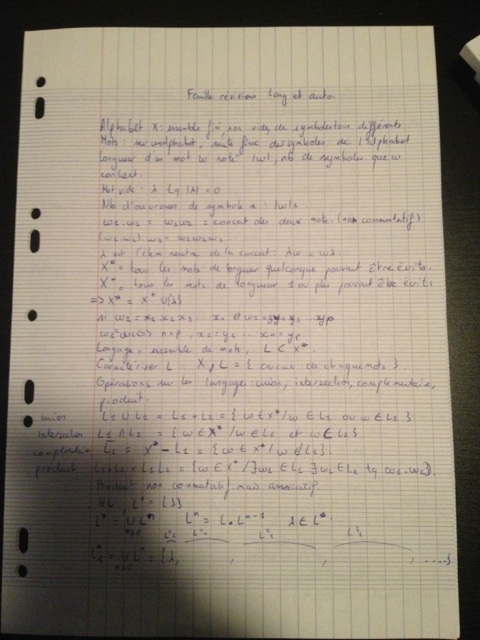 Feuille révision Lang et auto.
Alphabet X : ensemble fini, non vide, de symboles tous différents
Mots : sur un alphabet, suite finie de symboles de l'alphabet
longueur d'un mot w noté |w|, nb de symboles que w
contient.
Mot vide : λ tq |λ| = 0
Nb d'occurences de symbole x : |w|x
w1.w2 = w1w2 = concat des deux mots. (non commutatif)
(w1.w2).w3 = w1w2w3
λ est l'élém neutre de la concat : λw = wλ
X* = tous les mots de longueur quelconque pouvant être écrits.
X+ = tous les mots de longueur 1 ou plus pouvant être écrits
=> X* = X+ U {λ}
si w1 = x1 x2 x3 ... xn et w2 = y1 y2 y3 yp
w1 = w2 <=> n=p, x1=y1 ... xn=yp
Langage = ensemble de mots, L ⊂ X*.
Caractériser L : X, L = { }
Opérations sur les langages : union, intersection, complémentaire,
produit.
union L1 U L2 = L1 + L2 = { w ∈ X* / w ∈ L1 ou w ∈ L2 }
Intersection L1 ∩ L2 = { w ∈ X* / w ∈ L1 et w ∈ L2 }
L1 = X* - L1 = { w ∈ X* / w ∉ L1 }
produit L1.L2 = L1L2 = { w ∈ X* / ∃w1 ∈ L1 ∃w2 ∈ L2 tq w1.w2 }.
Produit non commutatif mais associatif.
∀L, L⁰ = {λ}
L* = U Lⁿ Lⁿ = L.Lⁿ⁻¹ λ ∈ L*
n≥0
L* = U Lⁿ = {λ, , , , ....}
n≥0